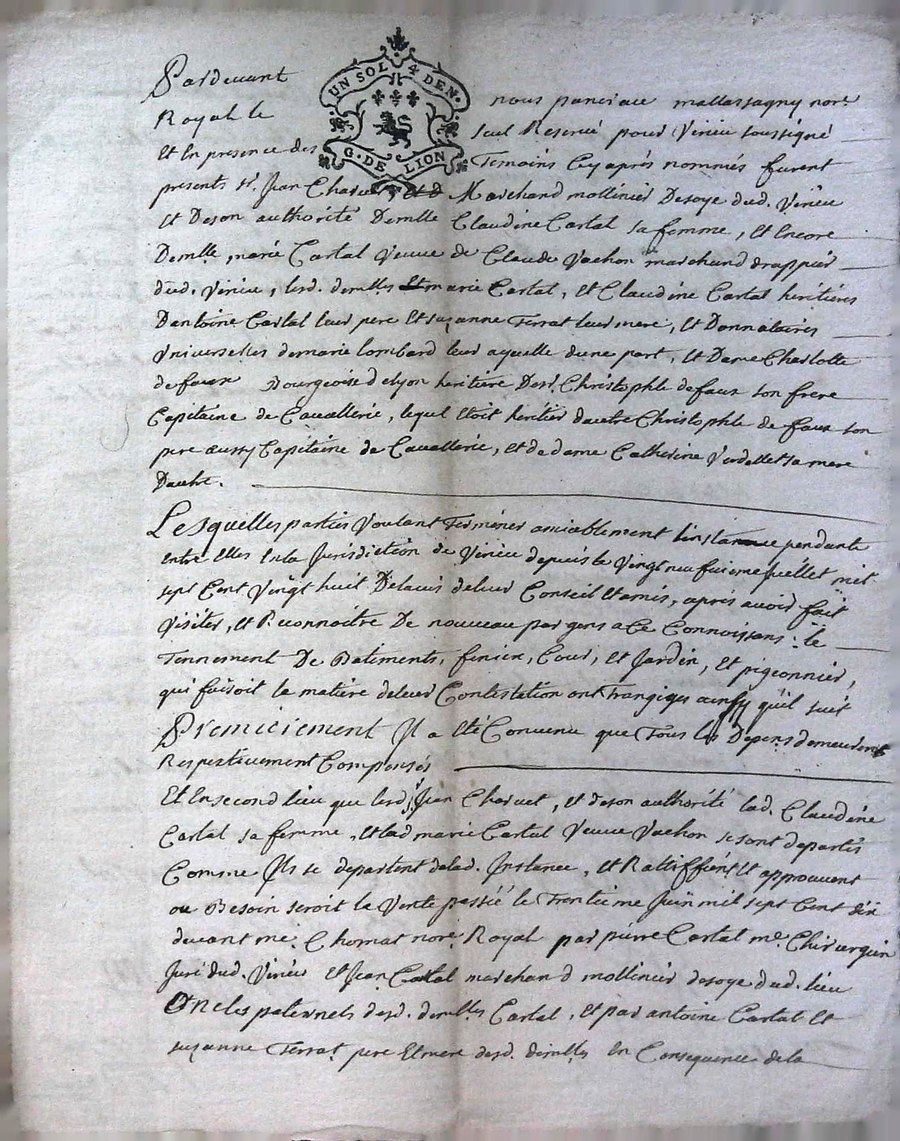 UN SOL 4 DEN.
G. DE LION
Pardevant nous pancrace mallassagny nore.
Royal le seul Reservé pour Virieu soussigné
Et En presence des Temoins Cy après nommés furent
presents sr. Jean Charvet, Marchand mollinier Desoye dud. Virieu
Et Deson authorité Demlle Claudine Cartal sa femme, Et Encore
Demlle marie Cartal Veuve de Claude Vachon marchand drappier
dud. Virieu, lesd. demlles marie Cartal, Et Claudine Cartal heritieres
Dantoine Cartal leur pere Et suzanne Terrat leur mere, Et Donnataires
Universelles de marie lombard leur ayeulle dune part, Et Dame Charlotte
de faure Bourgeoise delyon heritiere Desr. Christophle de faure son frere
Capitaine de Cavallerie, lequel Etoit heritier dautre Christophle de faure son
pere aussy Capitaine de Cavallerie, et de dame Catherine Verdellet sa mere
Dautre.
Lesquelles parties Voulant Terminer amiablement linstance pendante
entre elles En la Jurisdiction de Virieu depuis le Vingt neufvieme Juillet mil
sept Cent Vingt huit Delavis deleur Conseil Et amis, après avoir fait
Visiter, Et Reconnoitre De nouveau par gens a Ce Connoissans le
Tennement De Batiments, finier, Cour, Et Jardin, Et pigeonnier,
qui faisoit la matière deleur Contestation ont Trangigés ainsy quil suit
Premierement Il a Eté Convenu que Tous les Depens demeureront
Respectivement Compensés
Et En second lieu que lesd. Jean Charvet, Et deson authorité lad. Claudine
Cartal sa femme, Et lad marie Cartal Veuve Vachon se sont departis
Comme Ils se departent delad. Instance, Et Rattiffient Et approuvent
ou Besoin seroit la Vente passée le Trentieme Juin mil sept Cent dix
devant me. Chomat nore. Royal par pierre Cartal me. Chirurgien
Juré dud. Virieu Et Jean Cartal marchand mollinier desoye dud. lieu
Oncles paternels desd. demlles Cartal, Et par antoine Cartal Et
suzanne Terrat pere Et mere desd. demlles En Consequence de la